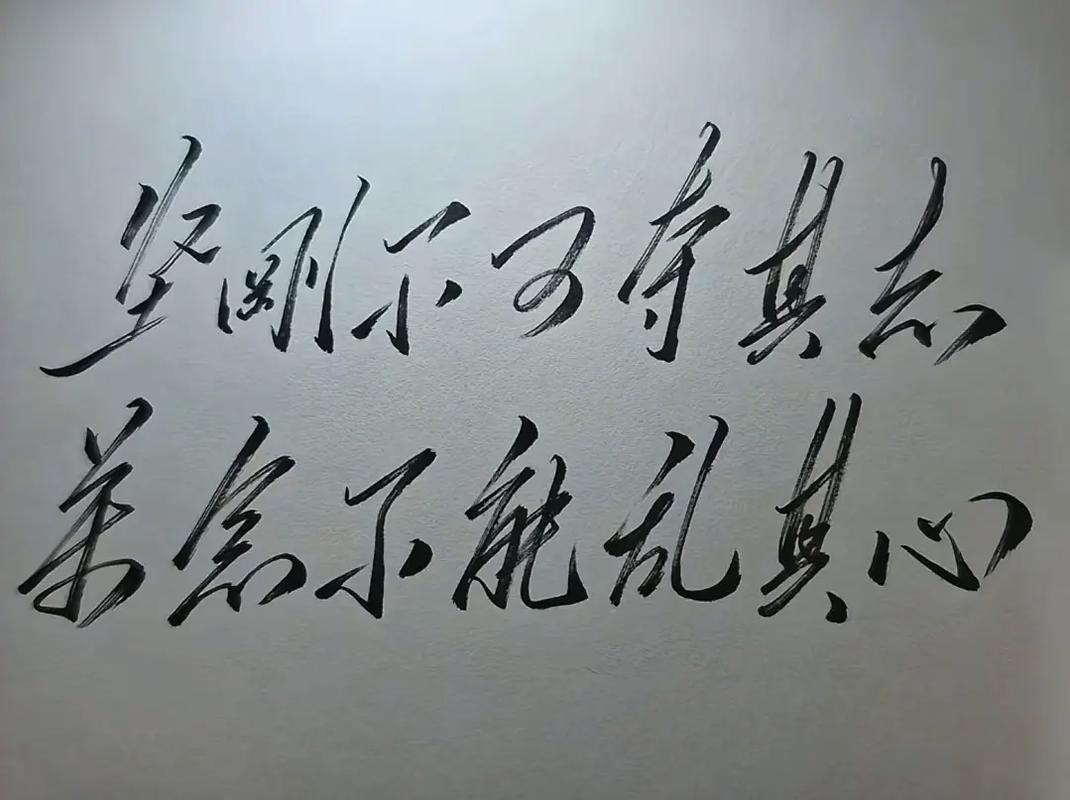 坚刚不可夺其志
万念不能乱其心